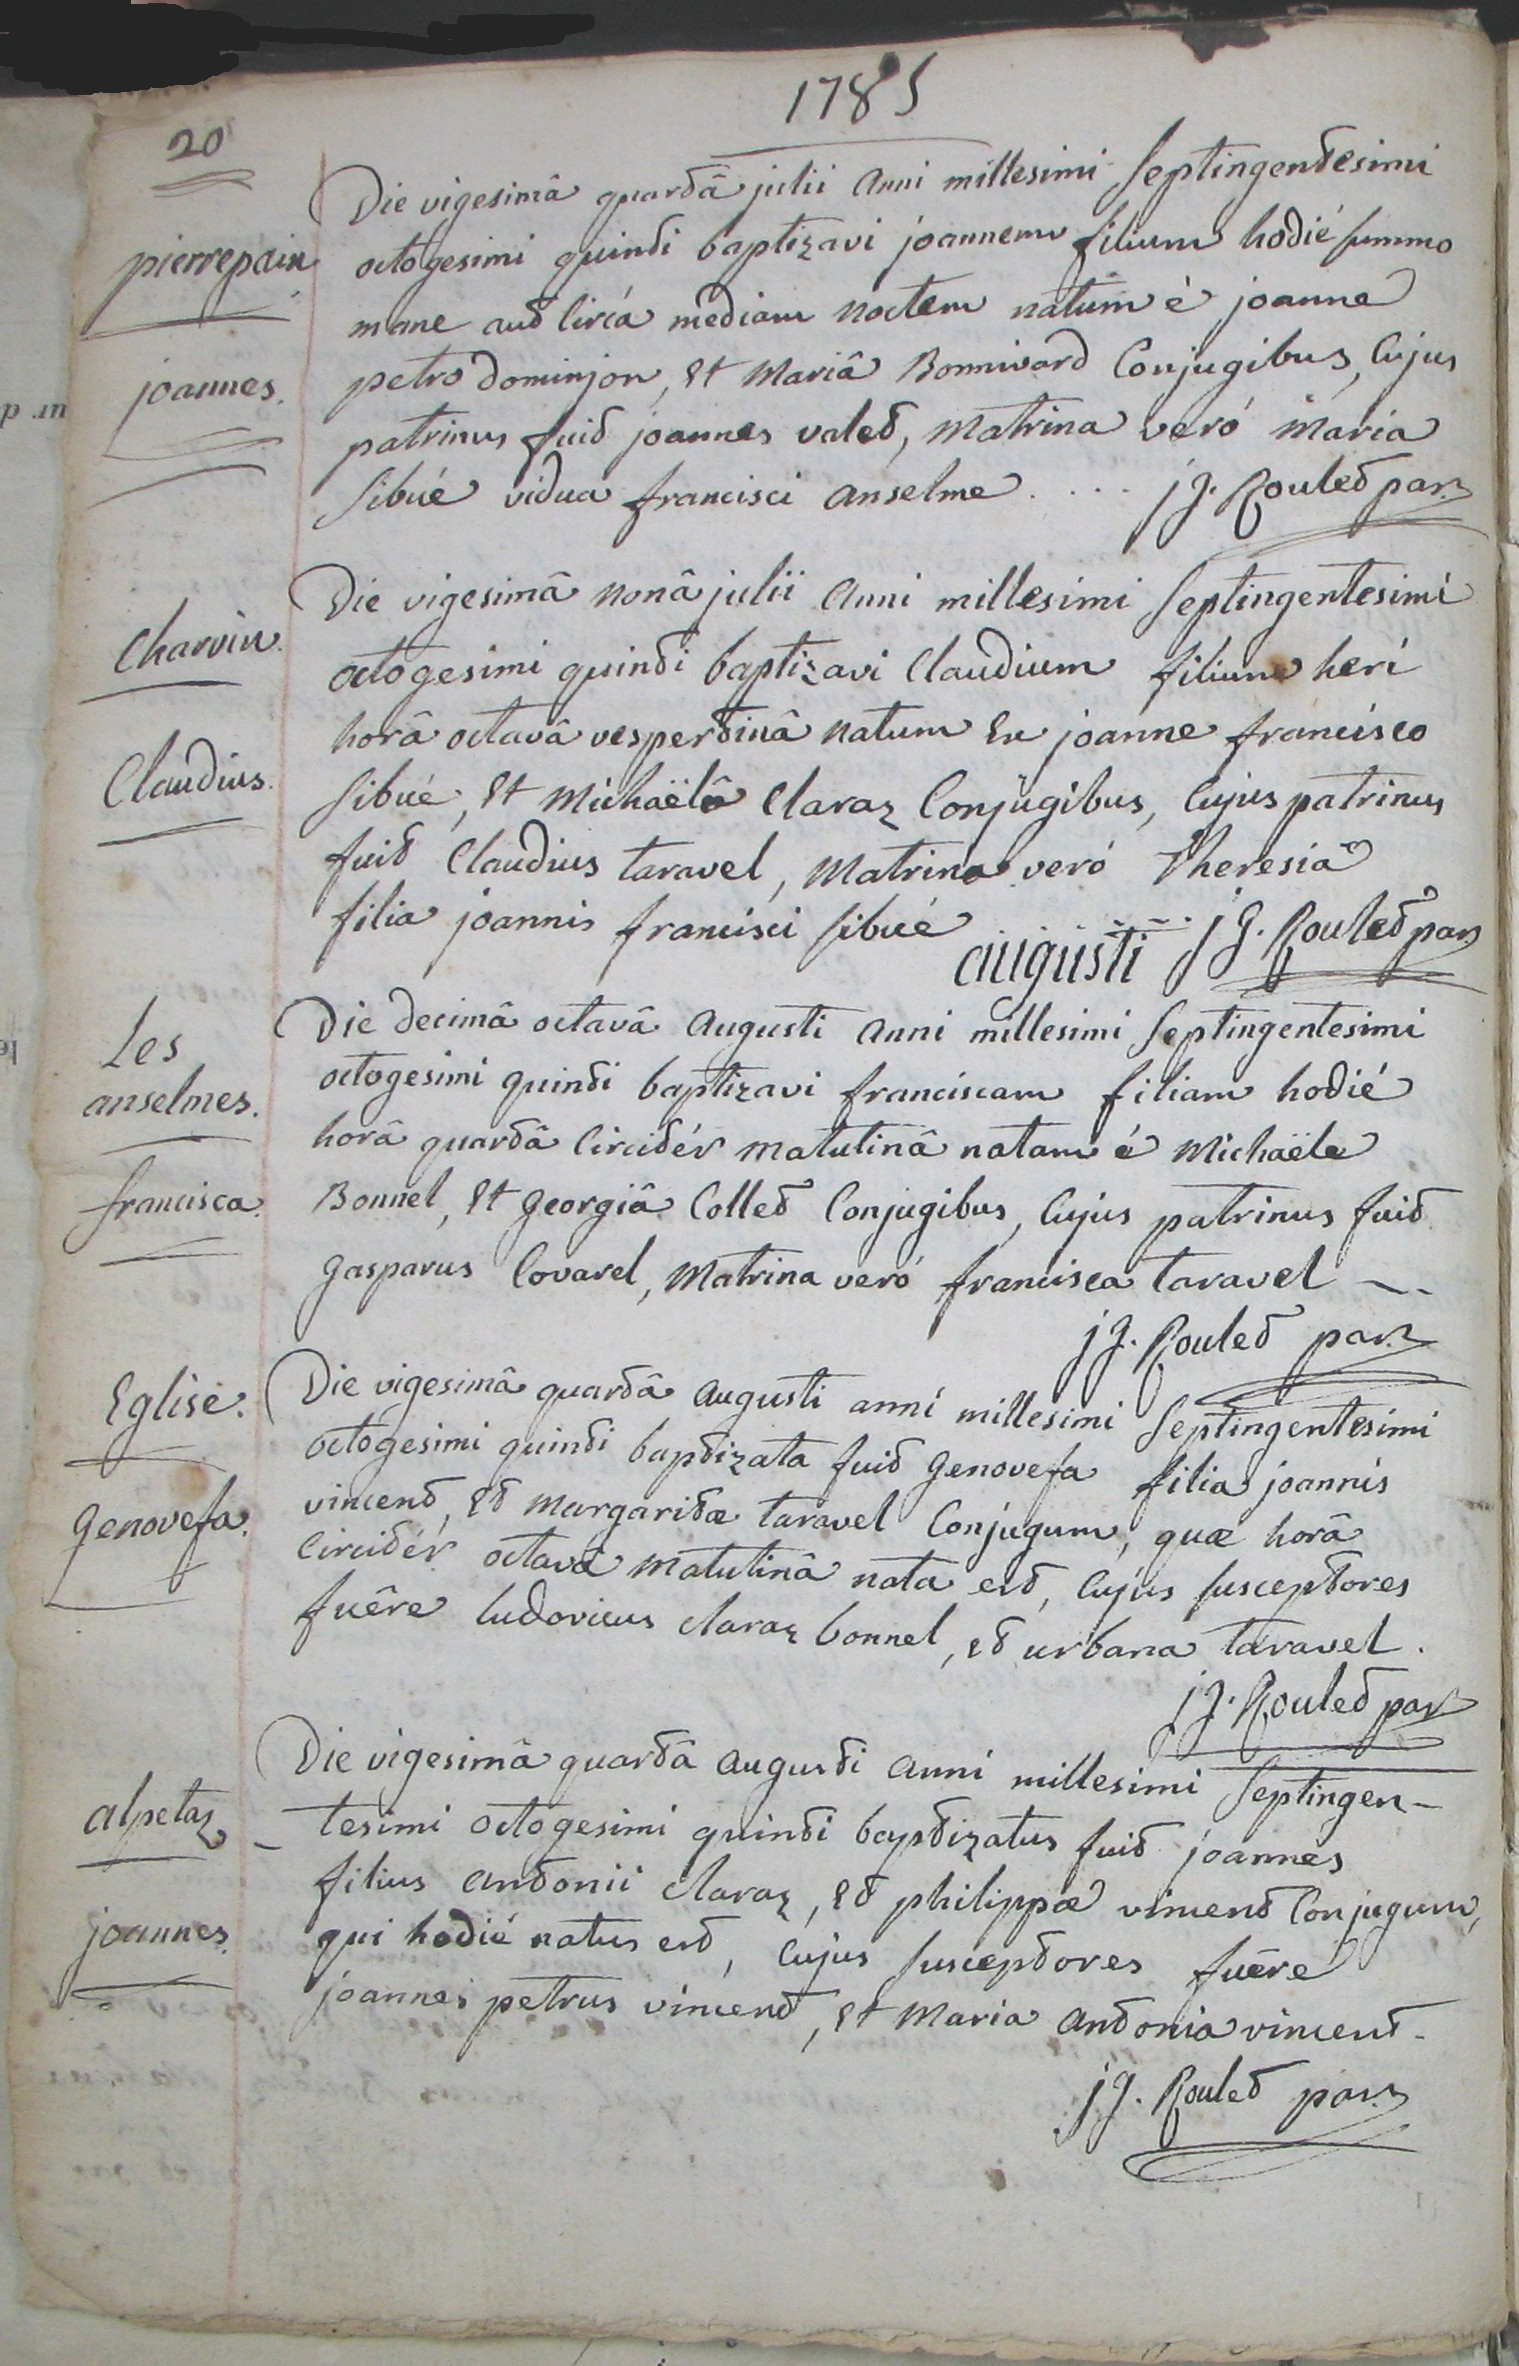 1785
20
Die vigesimâ quartâ julii anni millesimi septingentesimi
pierrepain
octogesimi quinti baptizavi joannem filium hodié summo
mane aut circá mediam noctem natum é joanne
joannes.
petro dominjon, et Mariâ Bonnivard Conjugibus, Cujus
patrinus fuit joannes valet, Matrina veró maria
Sibué vidua francisci anselme .... jg. Roulet par.
Die vigesimâ nonâ julii anni millesimi septingentesimi
Charvin.
octogesimi quinti baptizavi Claudium filium heri
horâ octavâ vespertinâ natum ex joanne francisco
Claudius.
Sibué, et Michaëlâ Claraz Conjugibus, Cujus patrinus
fuit Claudius taravel, Matrina veró Theresia
filia joannis francisci sibué jg. Roulet par
augusti
Die decimâ octavâ augusti anni millesimi septingentesimi
Les
anselmes.
octogesimi quinti baptizavi franciscam filiam hodié
horâ quartâ Circitér matutinâ natam é Michaële
francisca.
Bonnel, et georgiâ Collet Conjugibus, Cujus patrinus fuit
gasparus Covarel, Matrina veró francisca taravel
jg. Roulet par.
Eglise.
Die vigesimâ quartâ augusti anni millesimi septingentesimi
octogesimi quinti baptizata fuit genovefa filia joannis
genovefa.
vincent, et margaritæ taravel Conjugum, quæ horâ
Circitér octavâ matutinâ nata est, Cujus susceptores
fuêre ludovicus claraz bonnel, et urbana taravel.
jg. Roulet par
Die vigesimâ quartâ augusti anni millesimi septingen-
alpetaz
tesimi octogesimi quinti baptizatus fuit joannes
filius antonii claraz, et philippæ vincent Conjugum,
joannes.
qui hodié natus est, Cujus susceptores fuêre
joannes petrus vincent, et maria antonia vincent.
jg. Roulet par.